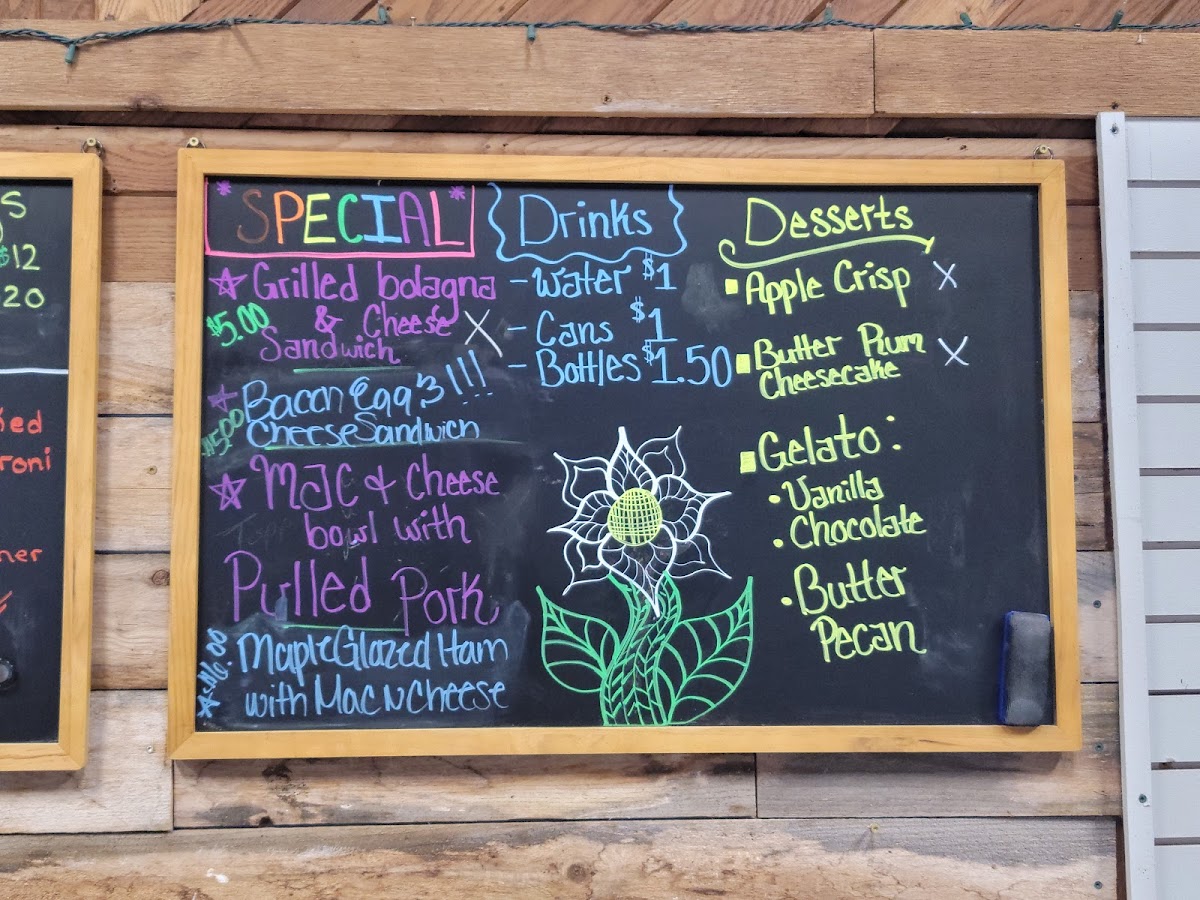 S
$12
20
ked
roni
ner
*SPECIAL*
Grilled bolagna
$5.00
& Cheese X
Sandwich
Bacon Egg's!!!
$5.00
Cheese Sandwich
Mac & Cheese
bowl with
Pulled Pork
Maple Glazed Ham
with Mac N Cheese
Drinks
- Water $1
- Cans $1
- Bottles $1.50
Desserts
Apple Crisp X
Butter Plum X
Cheesecake
Gelato:
• Vanilla
• Chocolate
• Butter
Pecan